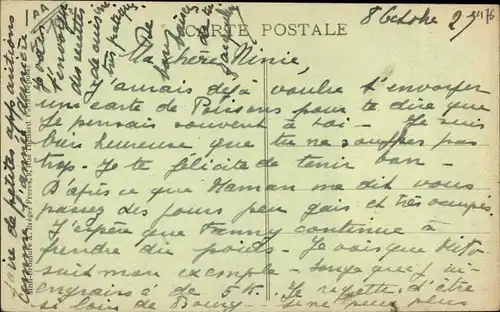 8 Octobre 25
CARTE POSTALE
Ma chère Ninie,
J'aurais déjà voulu t'envoyer
une carte de Poissons pour te dire que
Je pensais souvent à toi - Je suis
bien heureuse que tu ne souffres pas
trop. Je te félicite de tenir bon -
D'après ce que Maman me dit vous
passez des jours peu gais et très occupés
J'espère que Fanny continue à
prendre du poids - Je vois que
suit mon exemple - songe que j'ai
engraissé de 5 K. Je regrette d'être
si loin de Bourg - Je ne peux plus
faire de petites apparitions
comme l'année dernière -
Je
t'envoyer
des
de cuisine
très pratiques